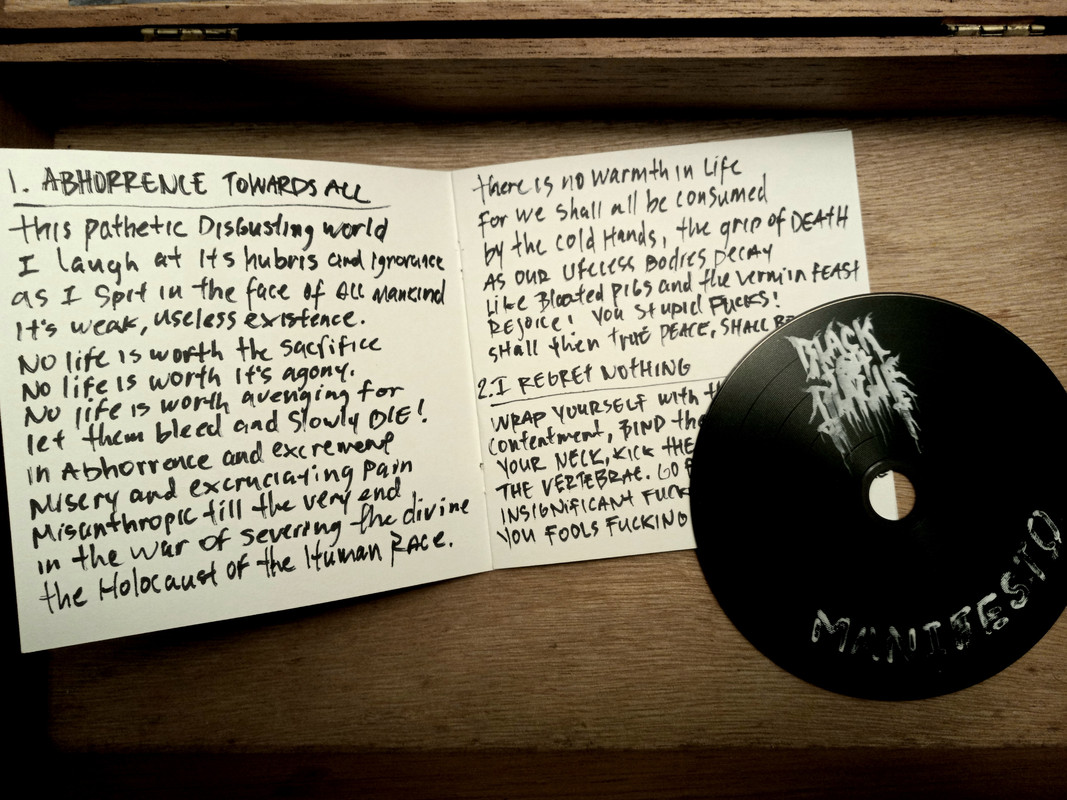 1. ABHORRENCE TOWARDS ALL
this pathetic Disgusting world
I laugh at its hubris and ignorance
as I spit in the face of All Mankind
It's weak, useless existence.
No life is worth the sacrifice
No life is worth it's agony.
No life is worth avenging for
let them bleed and slowly DIE!
in Abhorrence and excrement
Misery and excruciating pain
Misanthropic till the very end
in the war of severing the divine
the Holocaust of the Human Race.
there is no warmth in life
for we shall all be consumed
by the cold Hands, the grip of DEATH
AS OUR Useless Bodies Decay
Like Bloated Pigs and the vermin FEAST
Rejoice! You stupid FUCKS!
shall then true PEACE, SHALL
2. I REGRET NOTHING
WRAP YOURSELF with
contentment, BIND the
YOUR NECK, KICK THE
THE VERTEBRAE. GO
INSIGNIFICANT FUCK
YOU FOOLS FUCKING
BLACK
PLAGUE
MANIFESTO